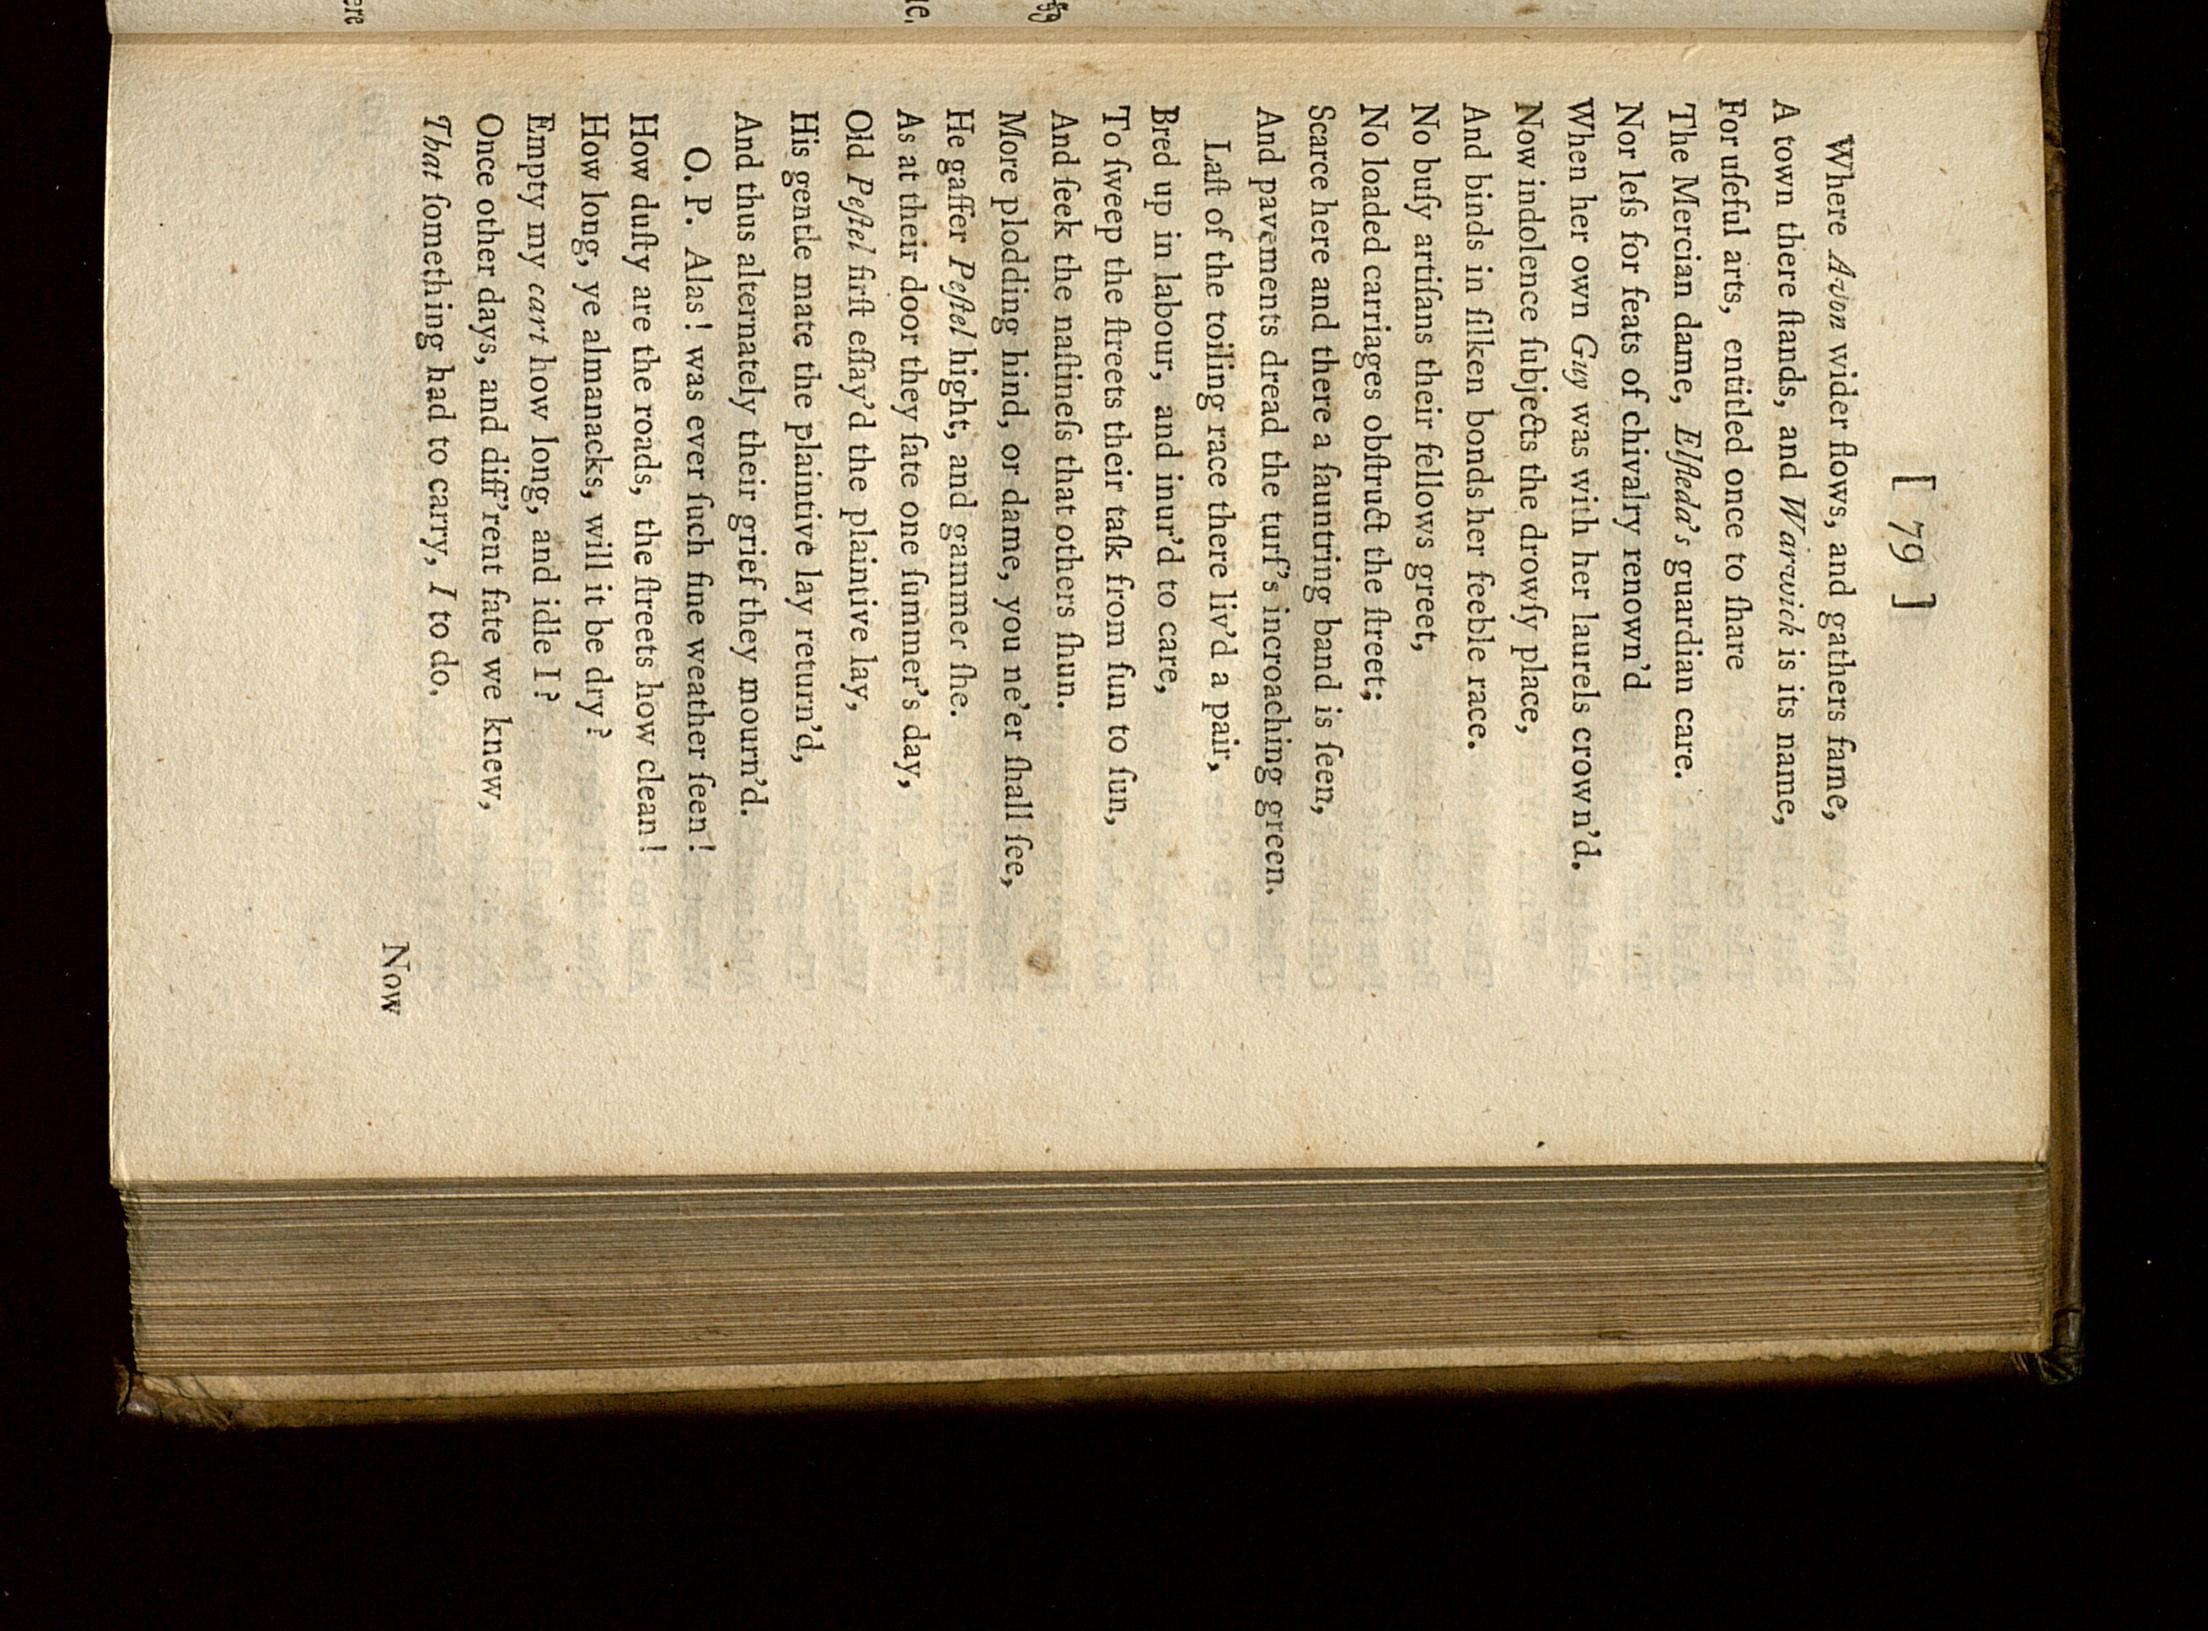 [ 79 ]
Where Avon wider flows, and gathers fame,
A town there ſtands, and Warwick is its name,
For uſeful arts, entitled once to ſhare
The Mercian dame, Elfleda's guardian care.
Nor leſs for feats of chivalry renown'd
When her own Guy was with her laurels crown'd.
Now indolence ſubjects the drowſy place,
And binds in ſilken bonds her feeble race.
No buſy artiſans their fellows greet,
No loaded carriages obſtruct the ſtreet;
Scarce here and there a ſauntring band is ſeen,
And pavements dread the turf's incroaching green.
Laſt of the toiling race there liv'd a pair,
Bred up in labour, and inur'd to care,
To ſweep the ſtreets their taſk from ſun to ſun,
And ſeek the naſtineſs that others ſhun.
More plodding hind, or dame, you ne'er ſhall ſee,
He gaffer Peſtel hight, and gammer ſhe.
As at their door they ſate one ſummer's day,
Old Peſtel firſt eſſay'd the plaintive lay,
His gentle mate the plaintive lay return'd,
And thus alternately their grief they mourn'd.
O. P. Alas! was ever ſuch fine weather ſeen!
How duſty are the roads, the ſtreets how clean!
How long, ye almanacks, will it be dry?
Empty my cart how long, and idle I?
Once other days, and diff'rent fate we knew,
That ſomething had to carry, I to do.
Now